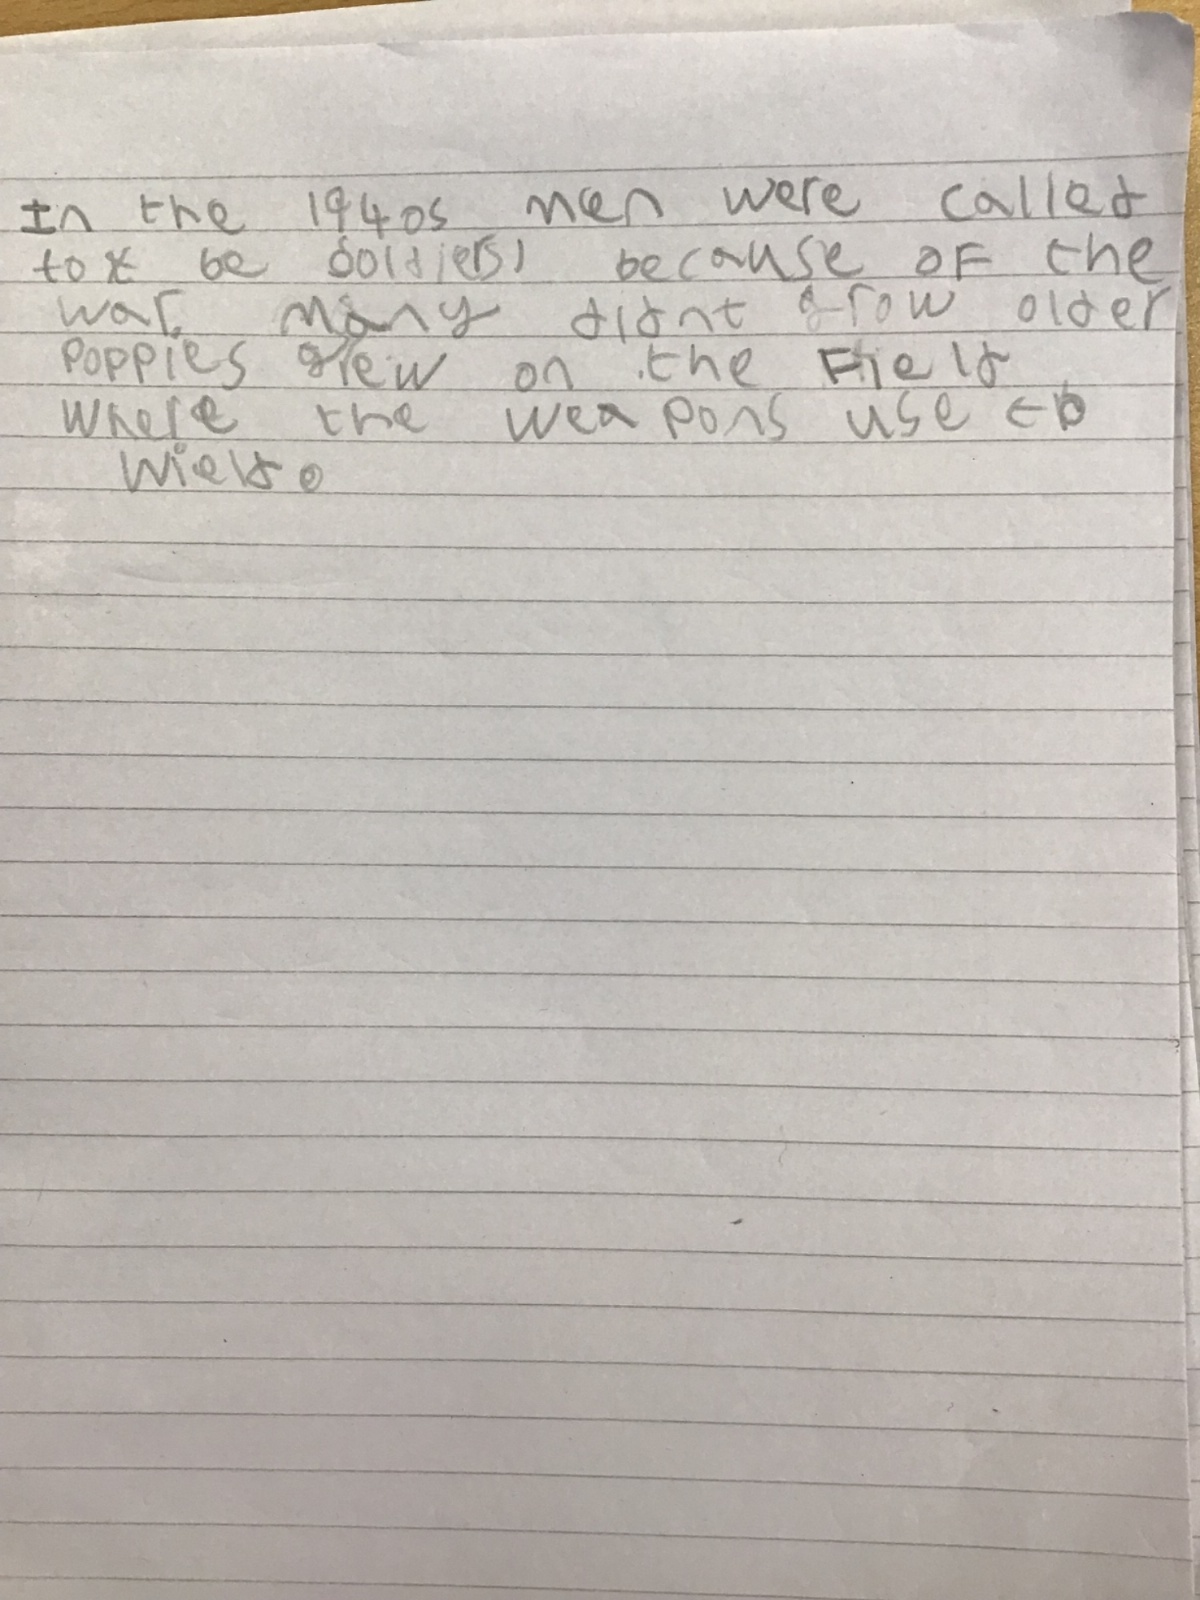 In the 1940s men were called
to be soldiers, because of the
war, many didnt grow older
Poppies grew on the Field
where the weapons use to
wield.